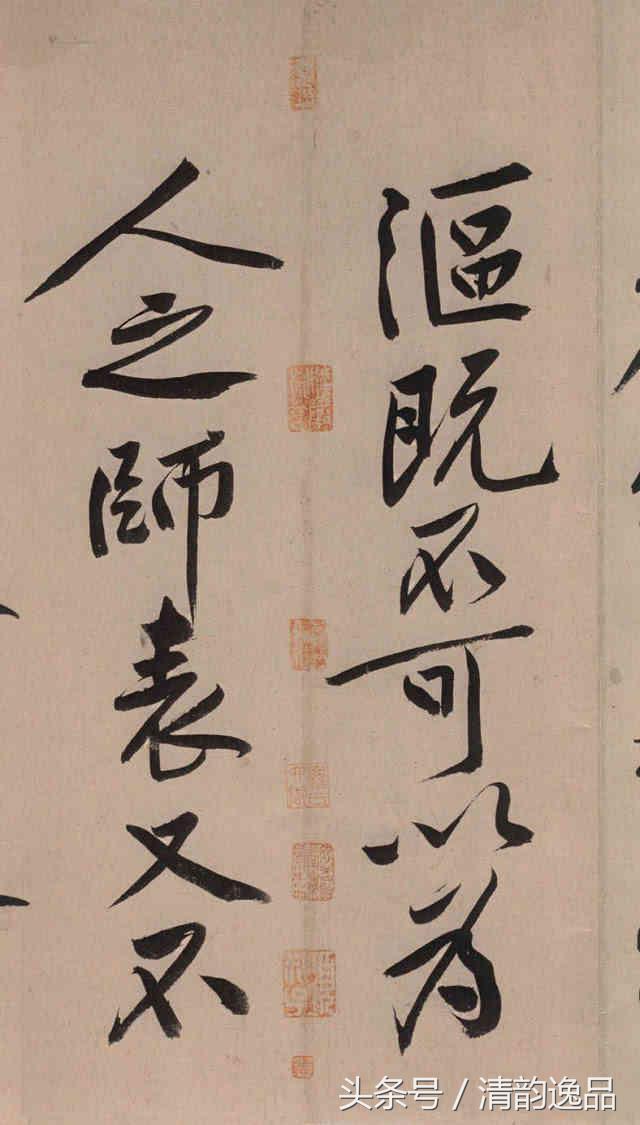 漚既不可以為
人之師表又不
头条号 / 清韵逸品